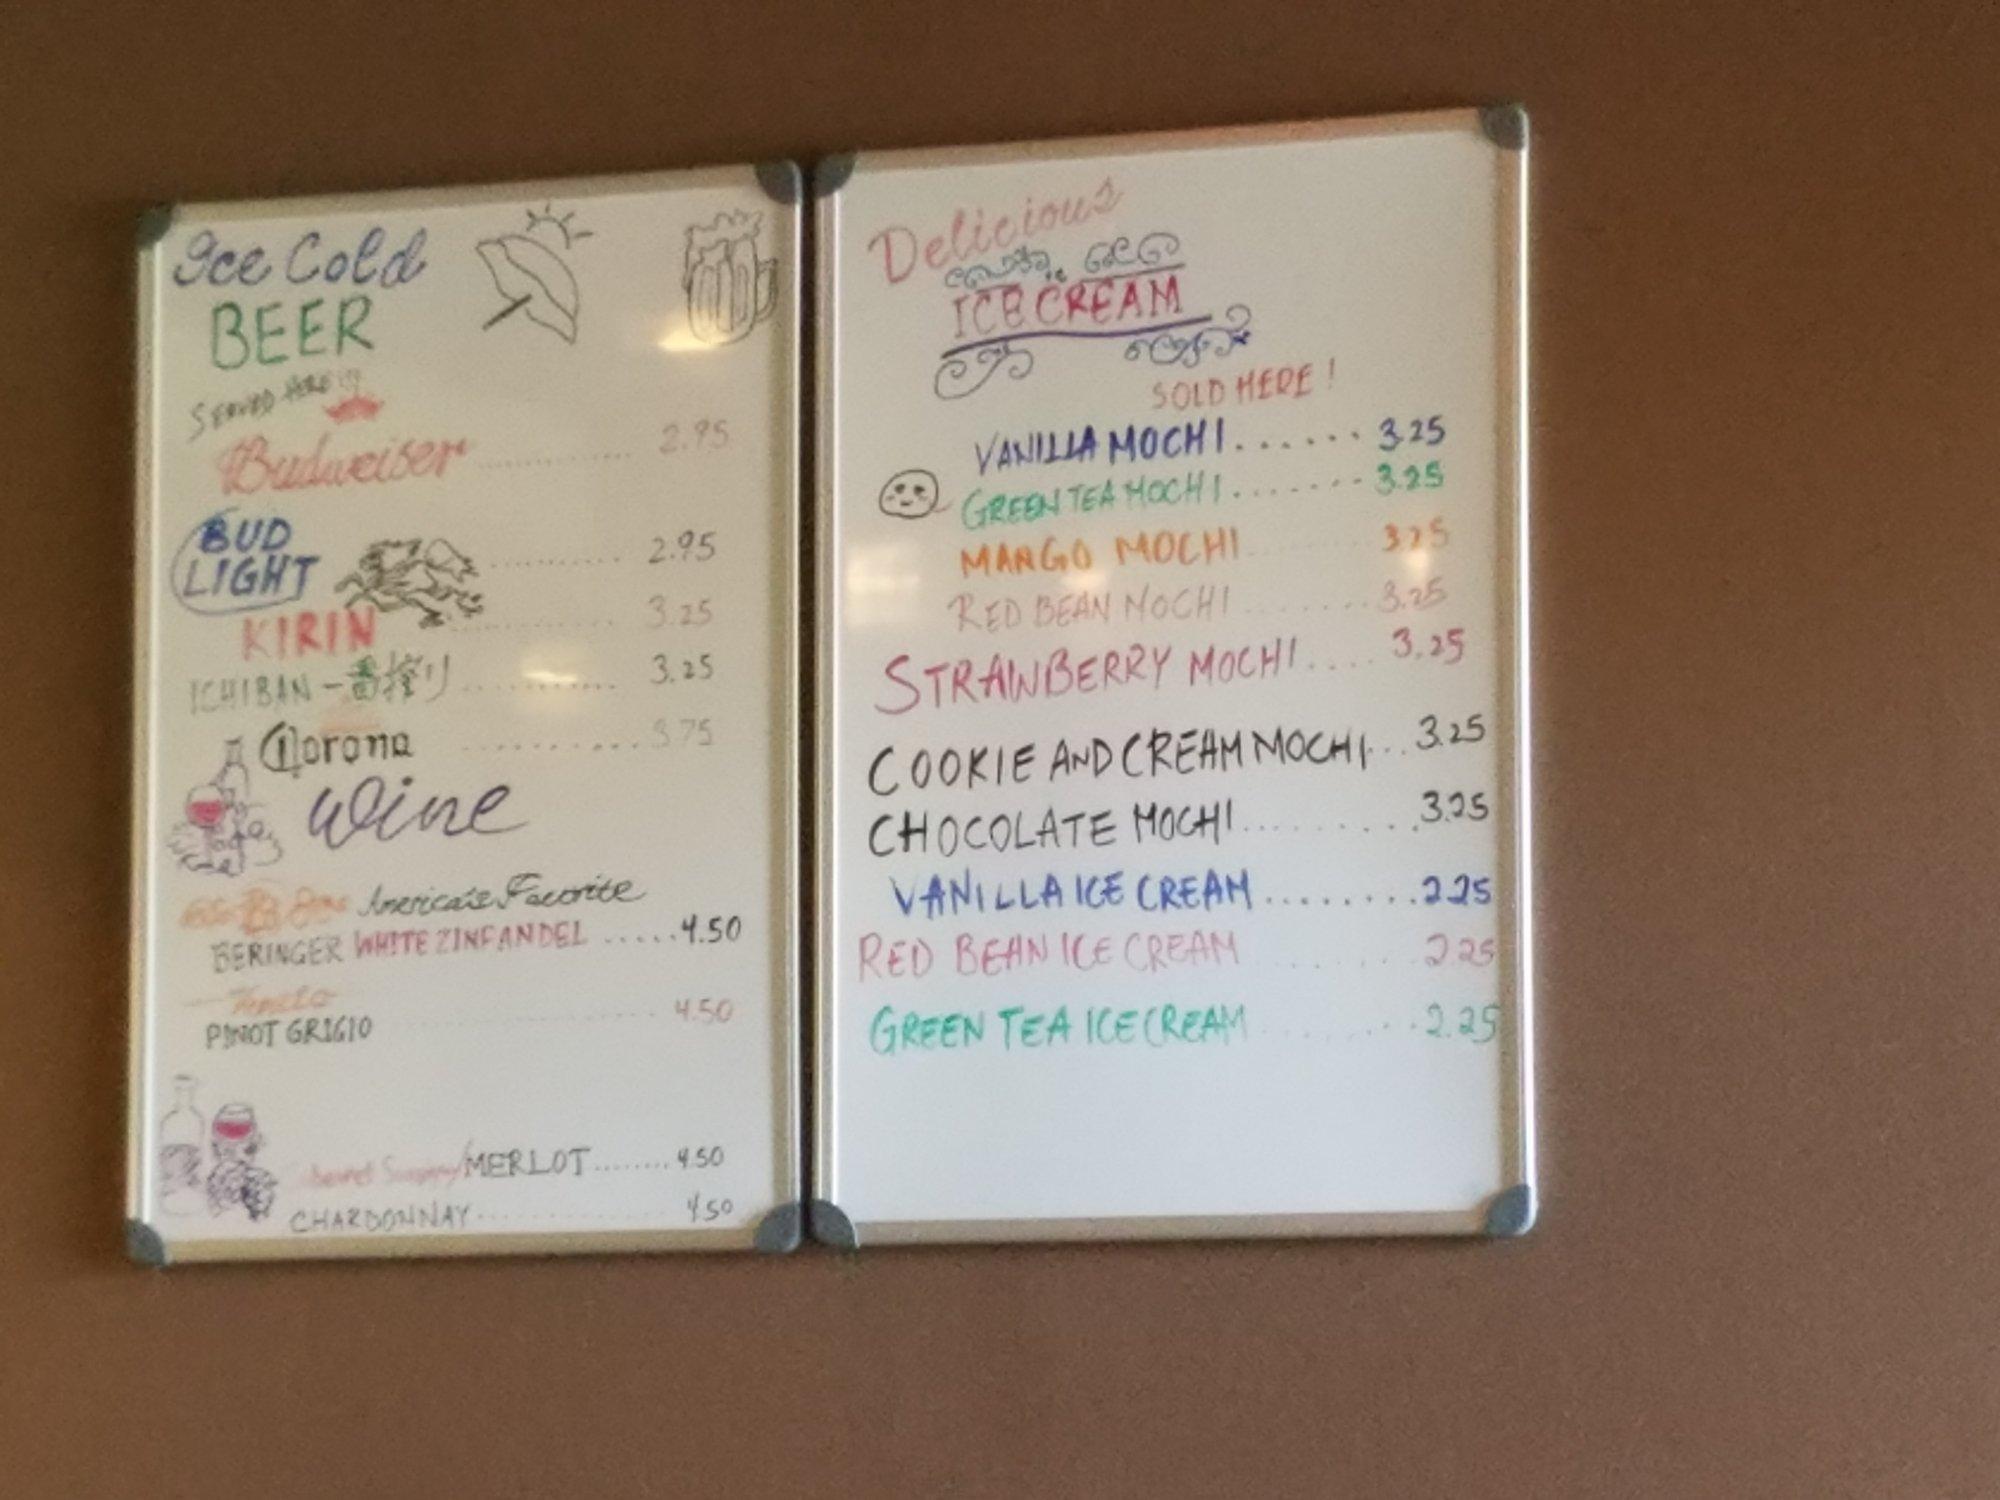 Ice Cold
BEER
SERVED HERE!!!
Budweiser ............ 2.95
BUD
LIGHT ............ 2.95
KIRIN ............ 3.25
ICHIBAN 一番搾り ............ 3.25
Corona ............ 3.75
Wine
America's Favorite
BERINGER WHITE ZINFANDEL ..... 4.50
PINOT GRIGIO ............ 4.50
/MERLOT ........ 4.50
CHARDONNAY ............ 4.50
Delicious
ICE CREAM
SOLD HERE!
VANILLA MOCHI ...... 3.25
GREEN TEA MOCHI ....... 3.25
MANGO MOCHI ....... 3.25
RED BEAN MOCHI ....... 3.25
STRAWBERRY MOCHI .... 3.25
COOKIE AND CREAM MOCHI ... 3.25
CHOCOLATE MOCHI ......... 3.25
VANILLA ICE CREAM ........ 2.25
RED BEAN ICE CREAM ....... 2.25
GREEN TEA ICE CREAM ....... 2.25